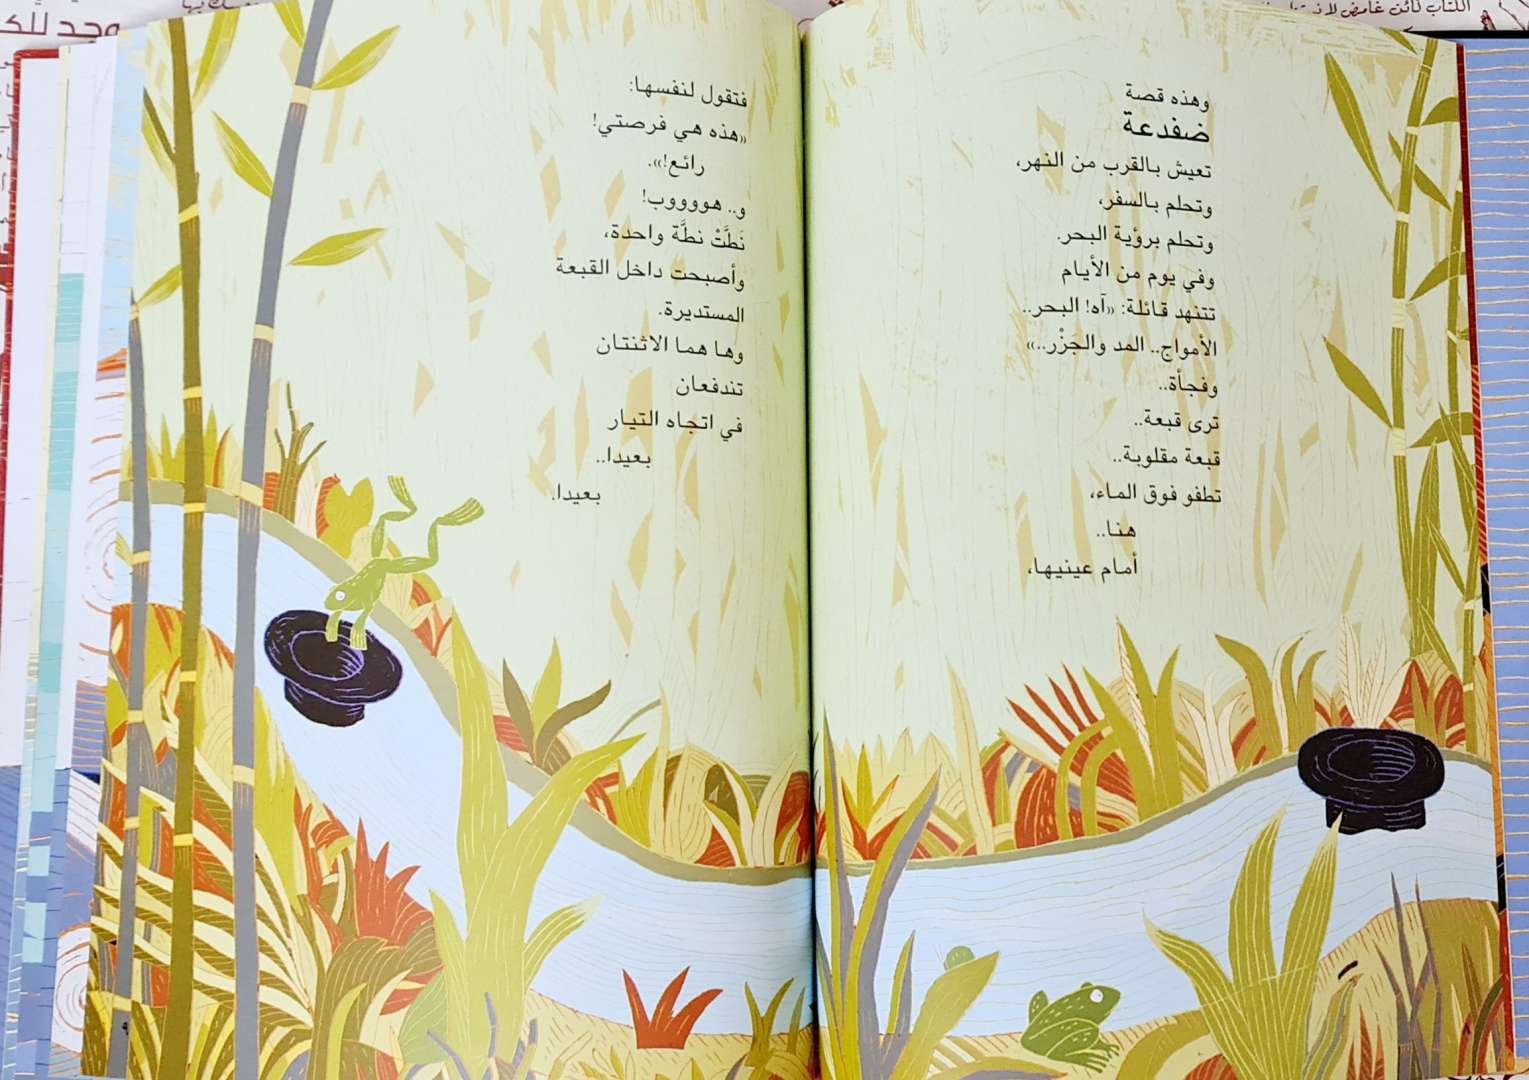 وهذه قصة
ضفدعة
تعيش بالقرب من النهر،
وتحلم بالسفر،
وتحلم برؤية البحر.
وفي يوم من الأيام
تتنهد قائلة: «آه! البحر..
الأمواج.. المد والجَزْر..»
وفجأة..
ترى قبعة..
قبعة مقلوبة..
تطفو فوق الماء،
هنا..
أمام عينيها،
فتقول لنفسها:
«هذه هي فرصتي!
رائع!».
و.. هووووب!
نَطَّتْ نطَّة واحدة،
وأصبحت داخل القبعة
المستديرة.
وها هما الاثنتان
تندفعان
في اتجاه التيار
بعيدا..
بعيدا.
٩
الكتاب كائن غامض